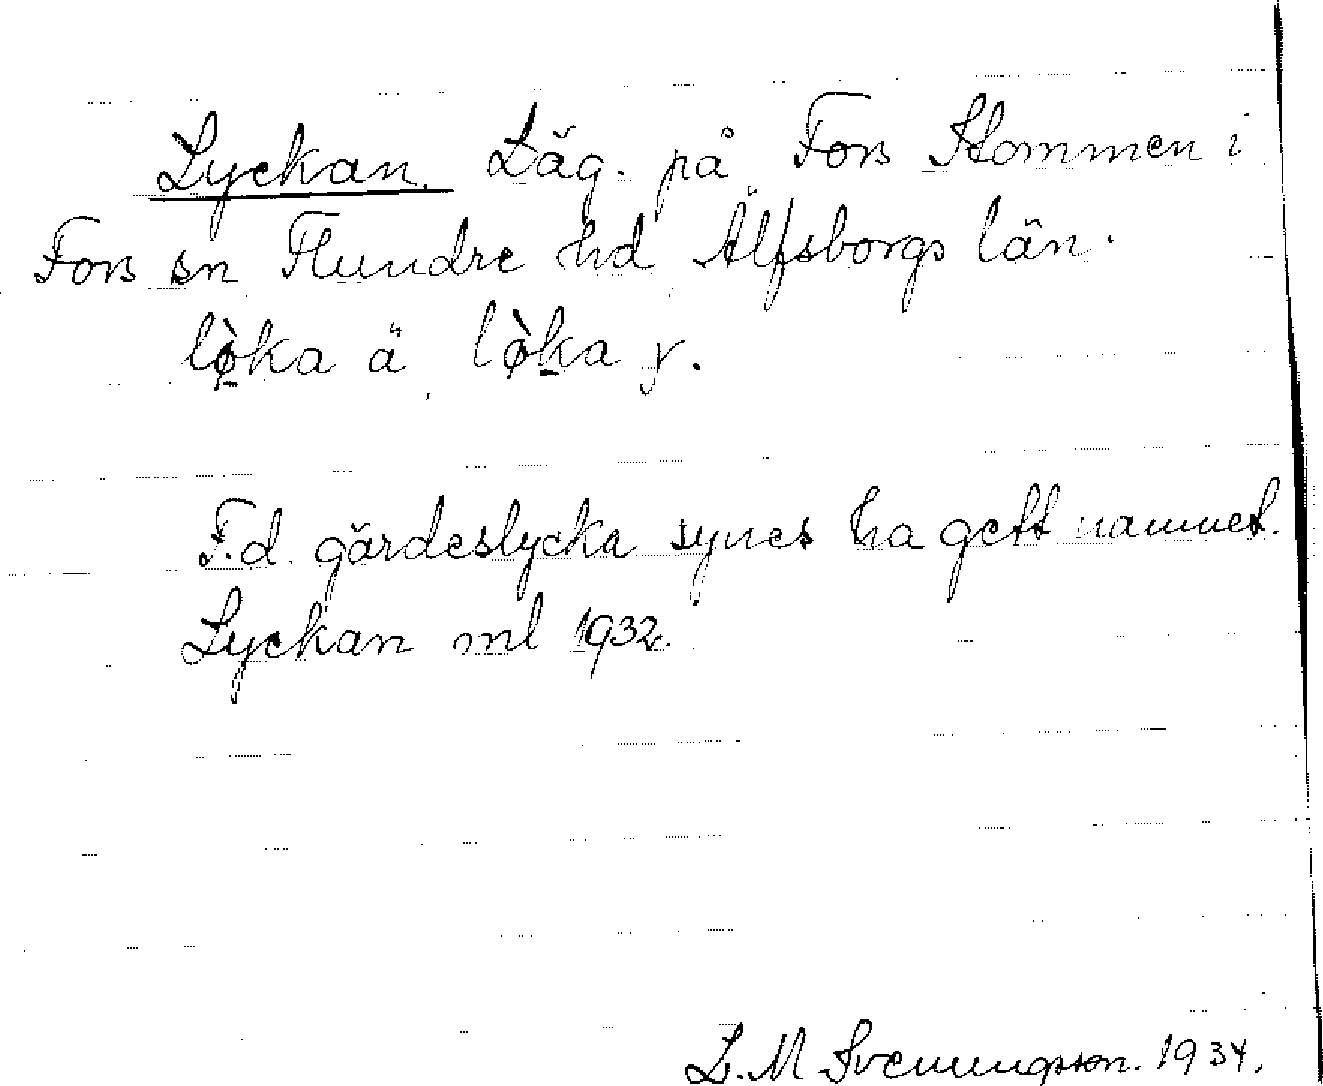 Lyckan. Läg. på Fors Stommen i
Fors sn Flundre hd Älfsborgs län.
lø̀ka ä, lø̀ka y.
F.d. gärdeslycka synes ha gett namnet.
Lyckan ml 1932.
L. M Svenungsson. 1934.